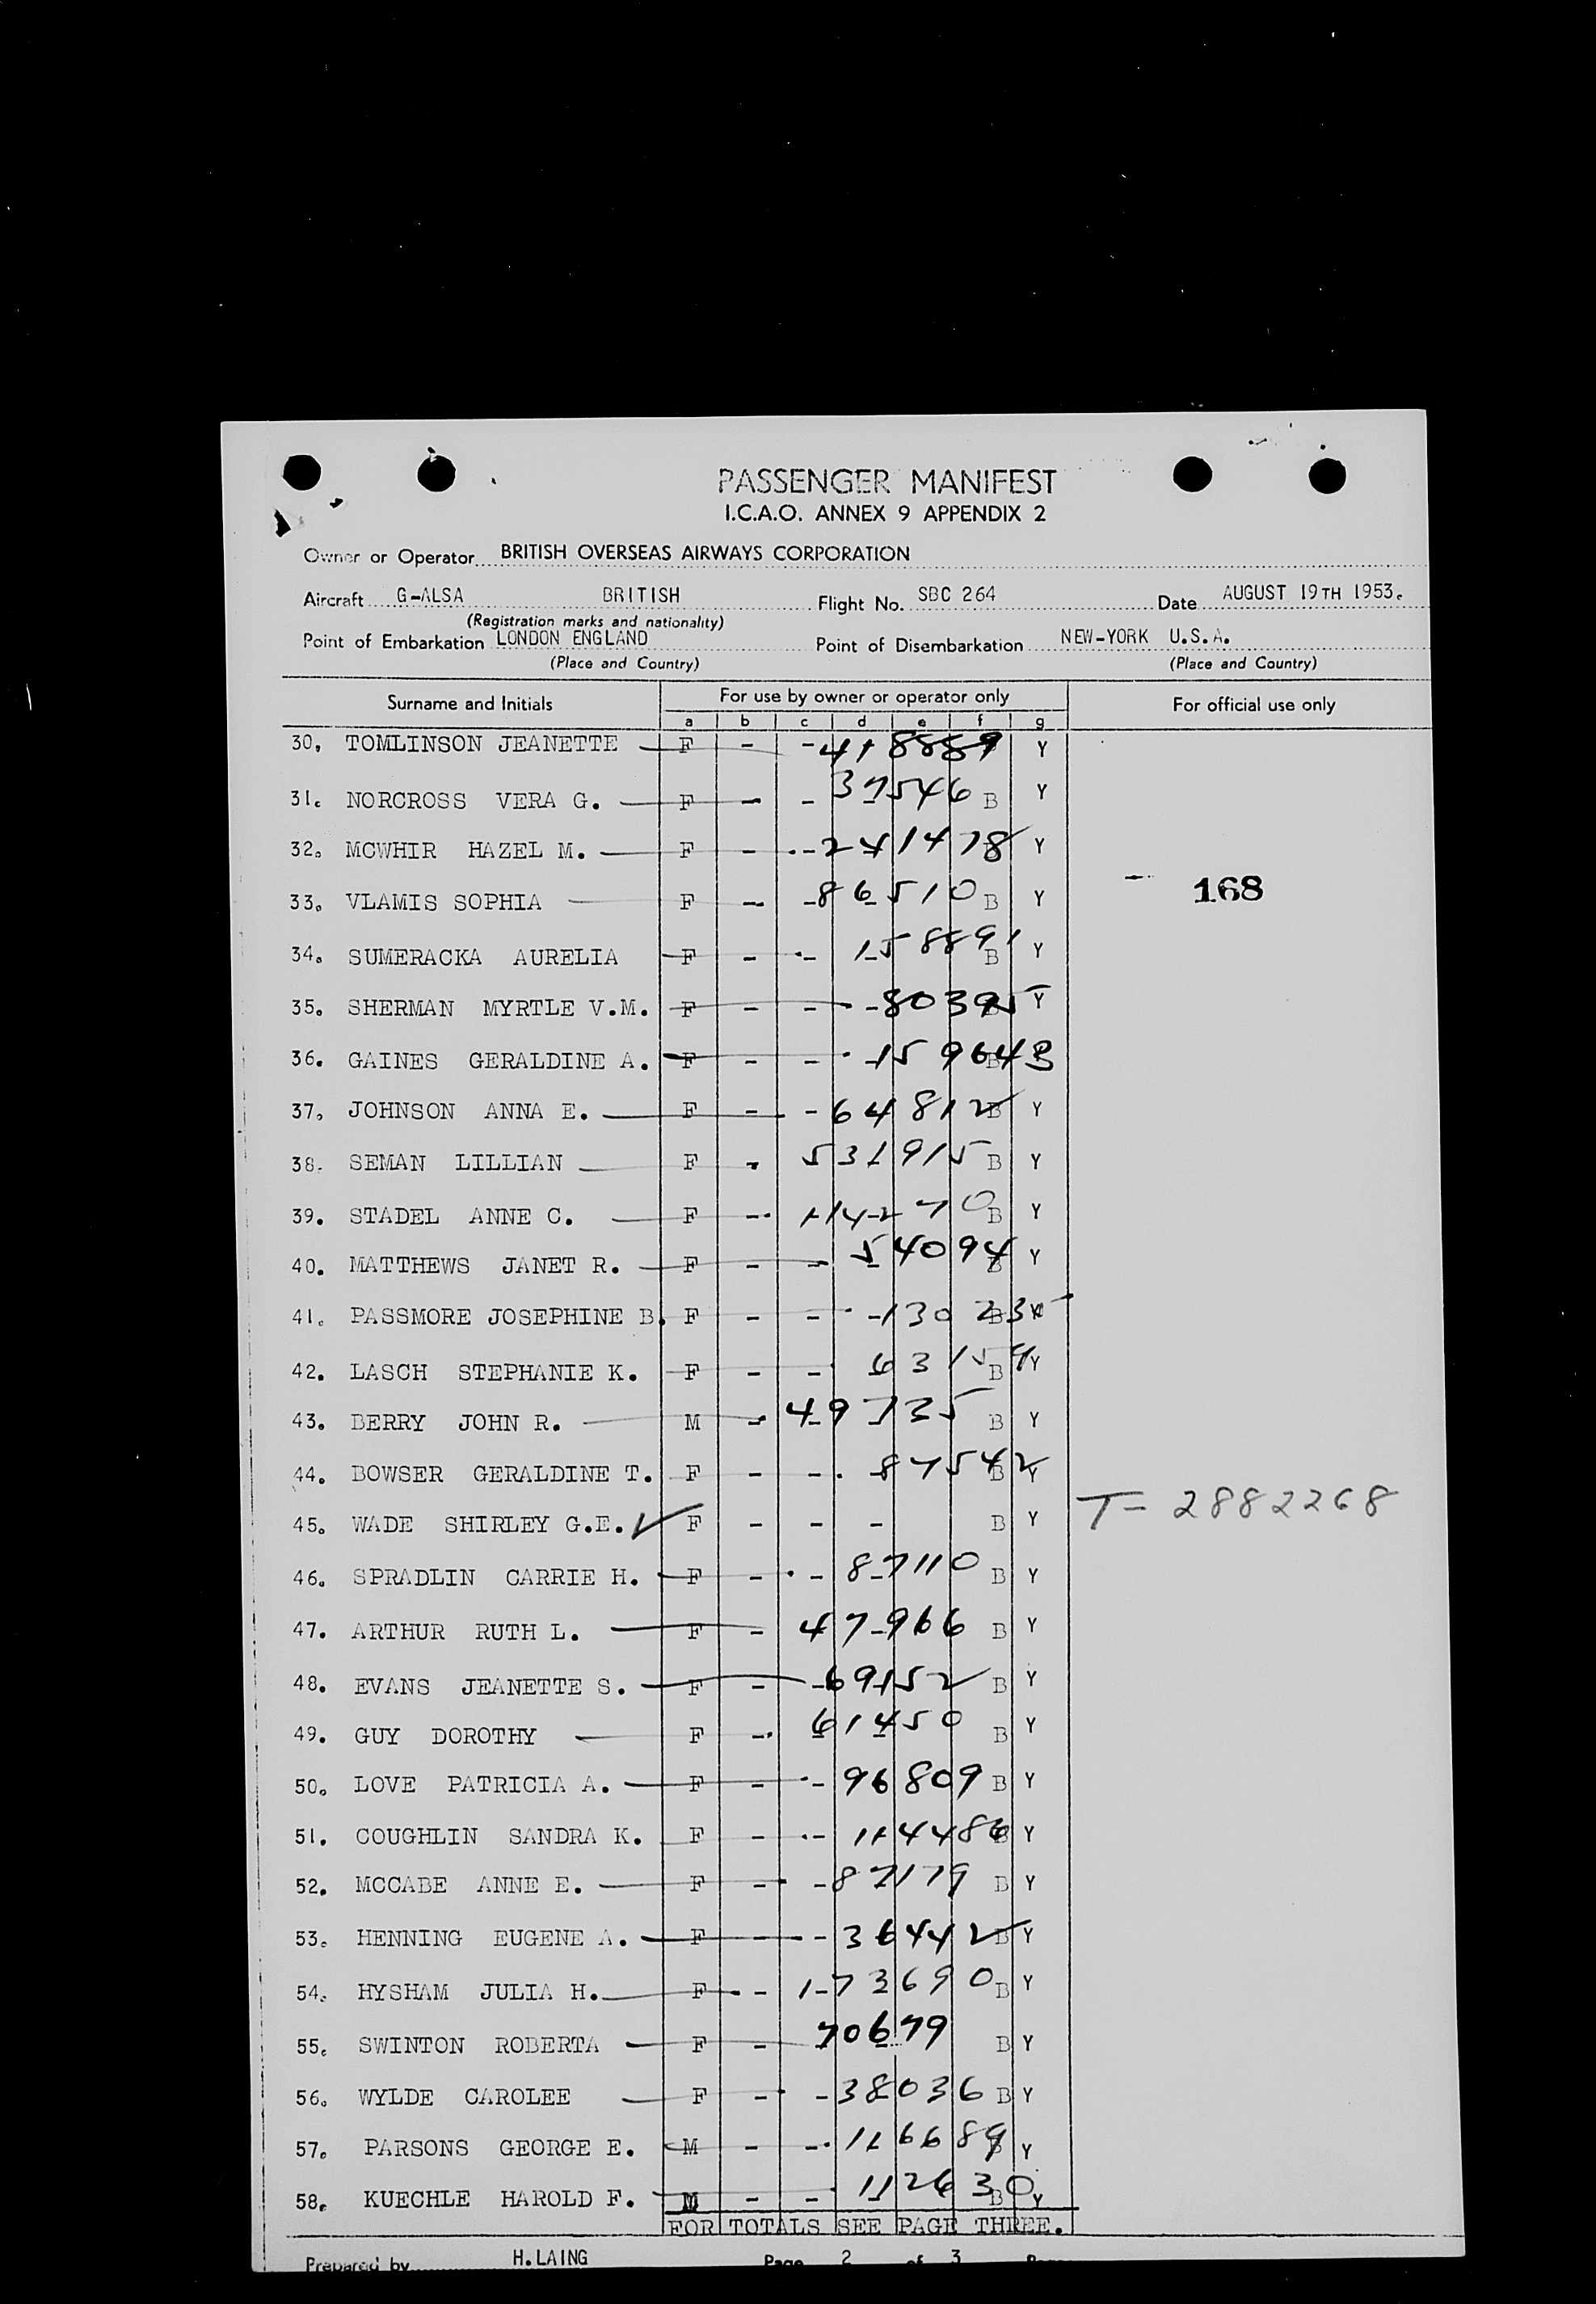 PASSENGER MANIFEST
I.C.A.O. ANNEX 9 APPENDIX 2
Owner or Operator BRITISH OVERSEAS AIRWAYS CORPORATION
Aircraft G-ALSA BRITISH Flight No. SBC 264 Date AUGUST 19TH 1953.
(Registration marks and nationality)
Point of Embarkation LONDON ENGLAND Point of Disembarkation NEW-YORK U.S.A.
(Place and Country) (Place and Country)
Surname and Initials For use by owner or operator only For official use only
a b c d e f g
30. TOMLINSON JEANETTE F - - Y
31. NORCROSS VERA G. F - - 37546 B Y
32. MCWHIR HAZEL M. F - - 241478 Y
33. VLAMIS SOPHIA F - - 86510 B Y
168
34. SUMERACKA AURELIA F - - 158891 B Y
35. SHERMAN MYRTLE V.M. F - - - 80395 Y
36. GAINES GERALDINE A. F - - - 159643
37. JOHNSON ANNA E. F - - 64812 B Y
38. SEMAN LILLIAN F - 531915 B Y
39. STADEL ANNE C. F - 114270 B Y
40. MATTHEWS JANET R. F - - 54094 B Y
41. PASSMORE JOSEPHINE B. F - - - 130235
42. LASCH STEPHANIE K. F - - 63154 B Y
43. BERRY JOHN R. M - 49735 B Y
44. BOWSER GERALDINE T. F - - 87542 B Y
T- 2882268
45. WADE SHIRLEY G.E. F - - - B Y
46. SPRADLIN CARRIE H. F - - 87110 B Y
47. ARTHUR RUTH L. F - 47966 B Y
48. EVANS JEANETTE S. F - - 69152 B Y
49. GUY DOROTHY F - 61450 B Y
50. LOVE PATRICIA A. F - - 96809 B Y
51. COUGHLIN SANDRA K. F - - 114486 Y
52. MCCABE ANNE E. F - - 87179 B Y
53. HENNING EUGENE A. F - - 36442 B Y
54. HYSHAM JULIA H. F - - 173690 B Y
55. SWINTON ROBERTA F - 70679 B Y
56. WYLDE CAROLEE F - - 38036 B Y
57. PARSONS GEORGE E. M - - 116689 B Y
58. KUECHLE HAROLD F. M - - 112630 B Y
FOR TOTALS SEE PAGE THREE.
Prepared by H.LAING Page 2 of 3 Pages